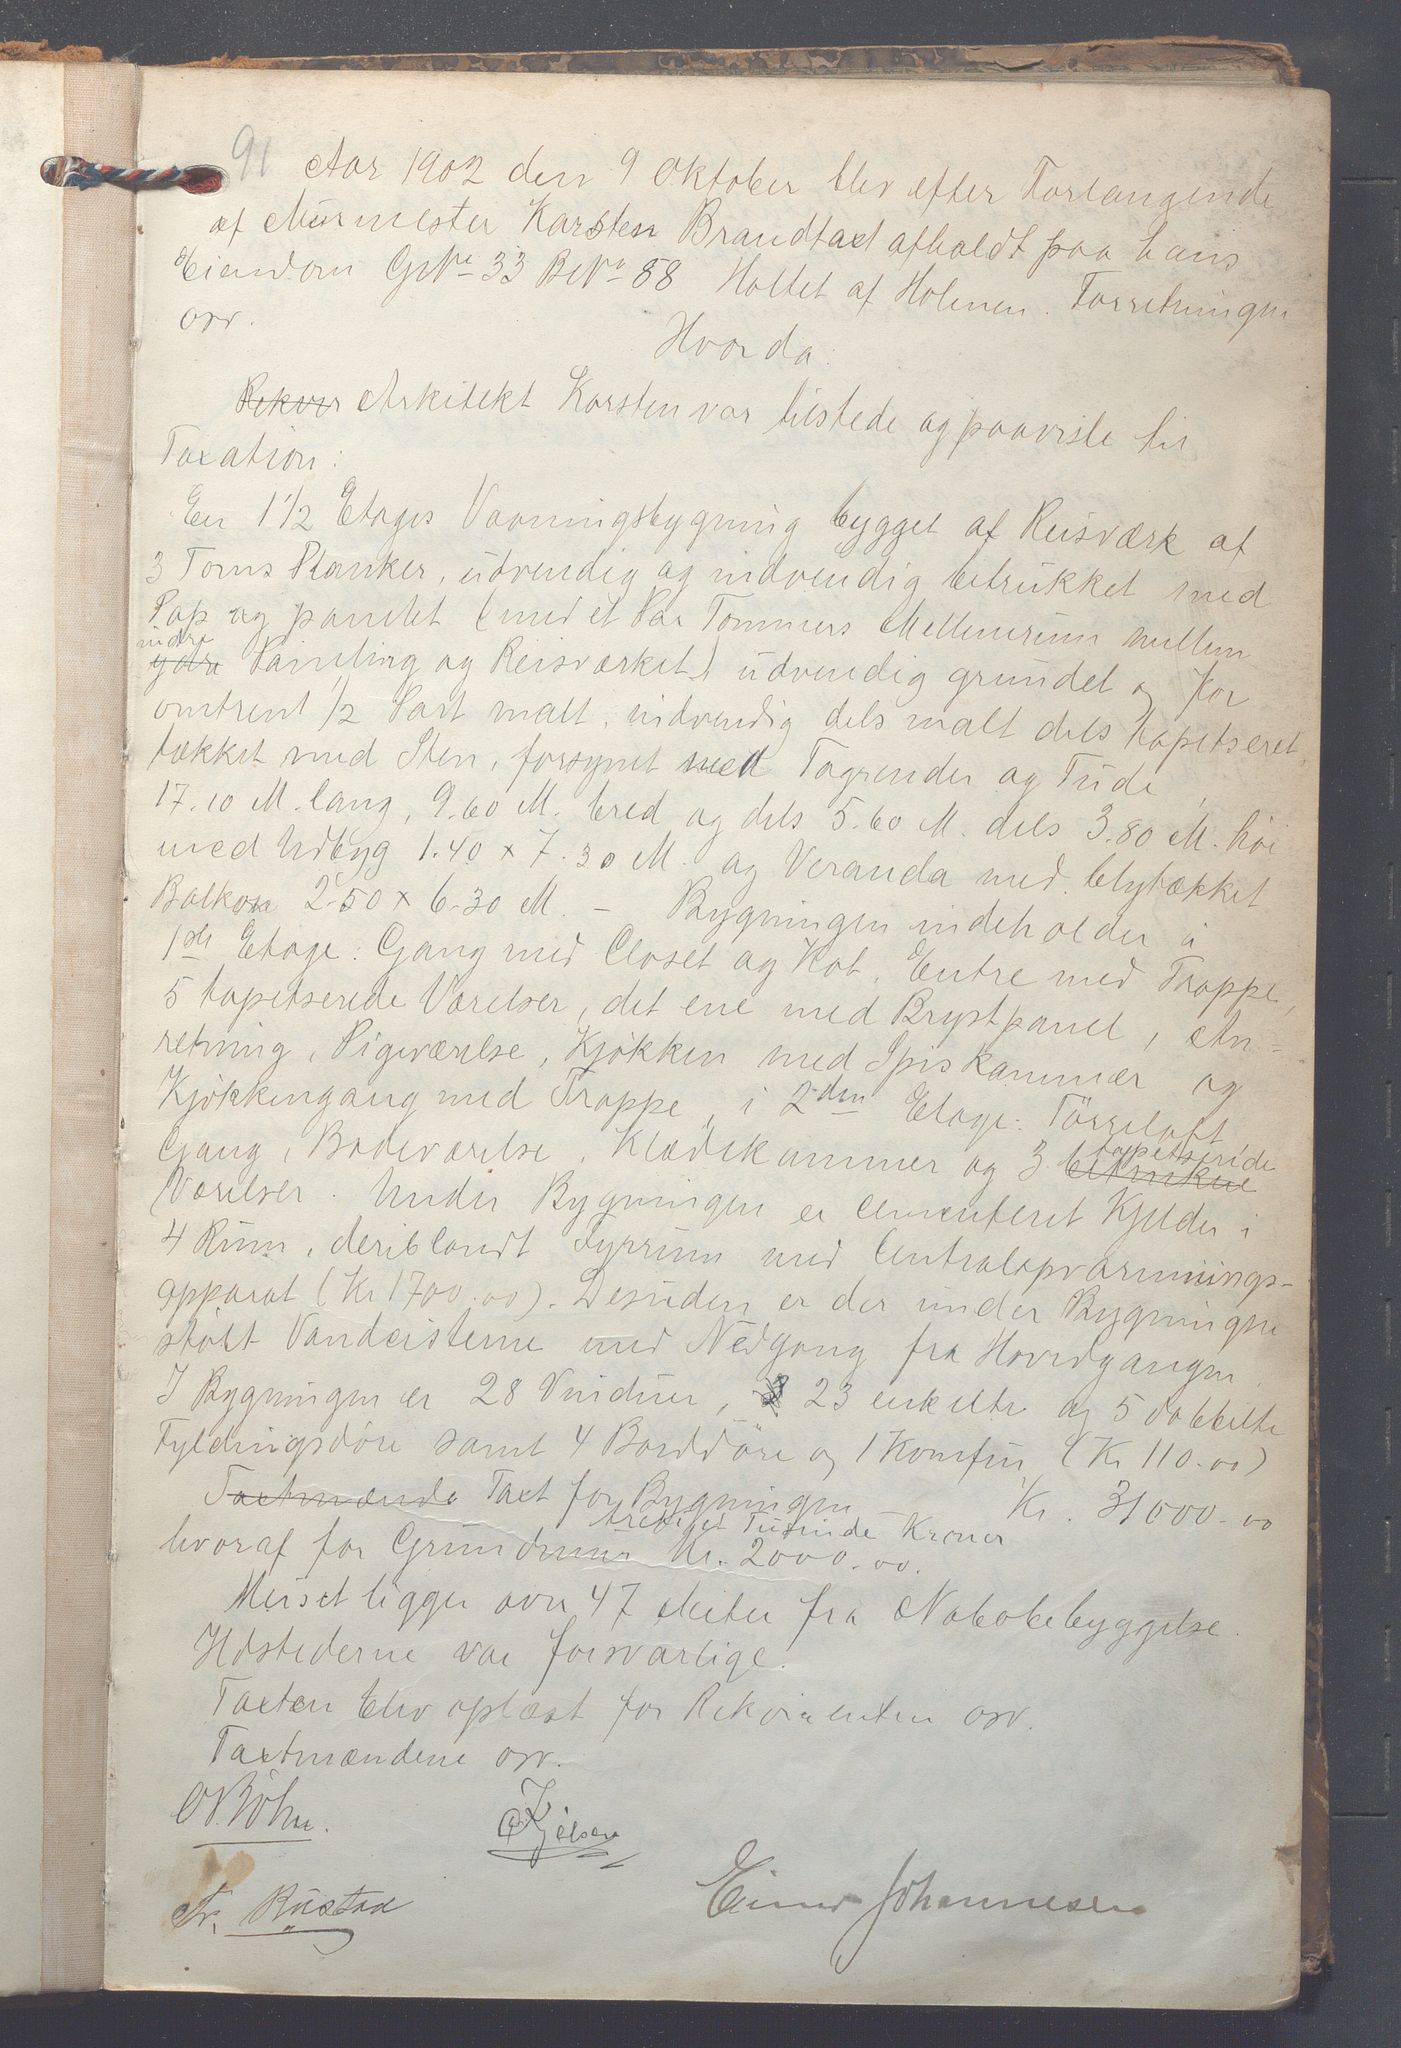 91 Aar 1902 den 9 Oktober blev efter Forlangende
af Murmester Karsten Brandtaxt afholdt paa hans
Eiendom GNo 33 BNo 88 Holtet af Holmen. Forretningen
osv.
Hvorda:
Rekvir Arkitekt Karsten var tilstede og paaviste til
Taxation:
En 1 1/2 Etages Vaaningsbygning bygget af Reisværk af
3 Toms Planker, udvendig og indvendig betrukket med
Pap og panelet (med et Par Tommers Mellemrum mellem
indre
ydre Paneling og Reisværket) udvendig grundet og for
omtrent 1/2 Part malt, indvendig dels malt dels tapetseret,
tækket med Sten, forsynet med Tagrender og Tude,
17.10 M. lang, 9.60 M. bred og dels 5.60 M. dels 3.80 M. høi
med Udbyg 1.40 x 7.30 M. og Veranda med blytækket
Balkon 2.50 x 6.30 M. – Bygningen indeholder i
1ste Etage: Gang med Closet og Kot, Entre med Trappe,
5 tapetserede Værelser, det ene med Brystpanel, An-
retning, Pigeværelse, Kjøkken med Spiskammer og
Kjøkkengang med Trappe, i 2den Etage: Tørreloft,
Gang, Badeværelse, Klædekammer og 3 tapetserede
betrukne
Værelser. Under Bygningen er cementeret Kjelder i
4 Rum, deriblandt Fyrrum med Centralopvarmnings-
apparat (Kr 1700.00). Desuden er der under Bygningen
støbt Vandcisterne med Nedgang fra Hovedgangen.
I Bygningen er 28 Vinduer, 23 enkelte og 5 dobbelte
Fyldningsdøre samt 4 Borddøre og 1 Komfur (Kr 110.00)
Taxtmændene Taxt for Bygningen Kr. 31000.00
tredive et Tusinde Kroner
hvoraf for Grundmur Kr. 2000.00.
Huset ligger over 47 Meter fra Nabobebyggelse.
Ildstederne var forsvarlige.
Taxten blev oplæst for Rekvirenten osv.
Taxtmændene osv.
O. Bøhn.
Kjelsen
Fr. Rustad
Einar Johannesen